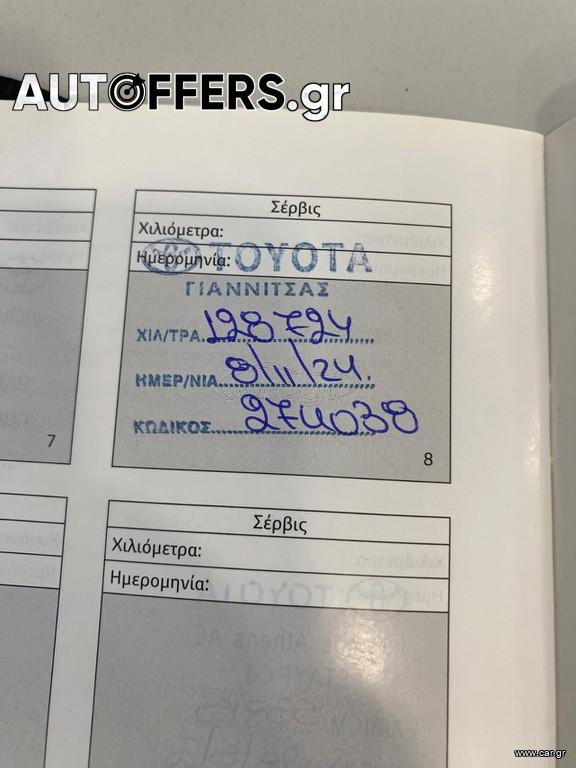 AUTOFFERS.gr
Σέρβις
Χιλιόμετρα:
Ημερομηνία:
TOYOTA
ΓΙΑΝΝΙΤΣΑΣ
ΧΙΛ/ΤΡΑ 128724
ΗΜΕΡ/ΝΙΑ 8/11/24.
ΚΩΔΙΚΟΣ 274038
7
8
Σέρβις
Χιλιόμετρα:
Ημερομηνία:
www.car.gr